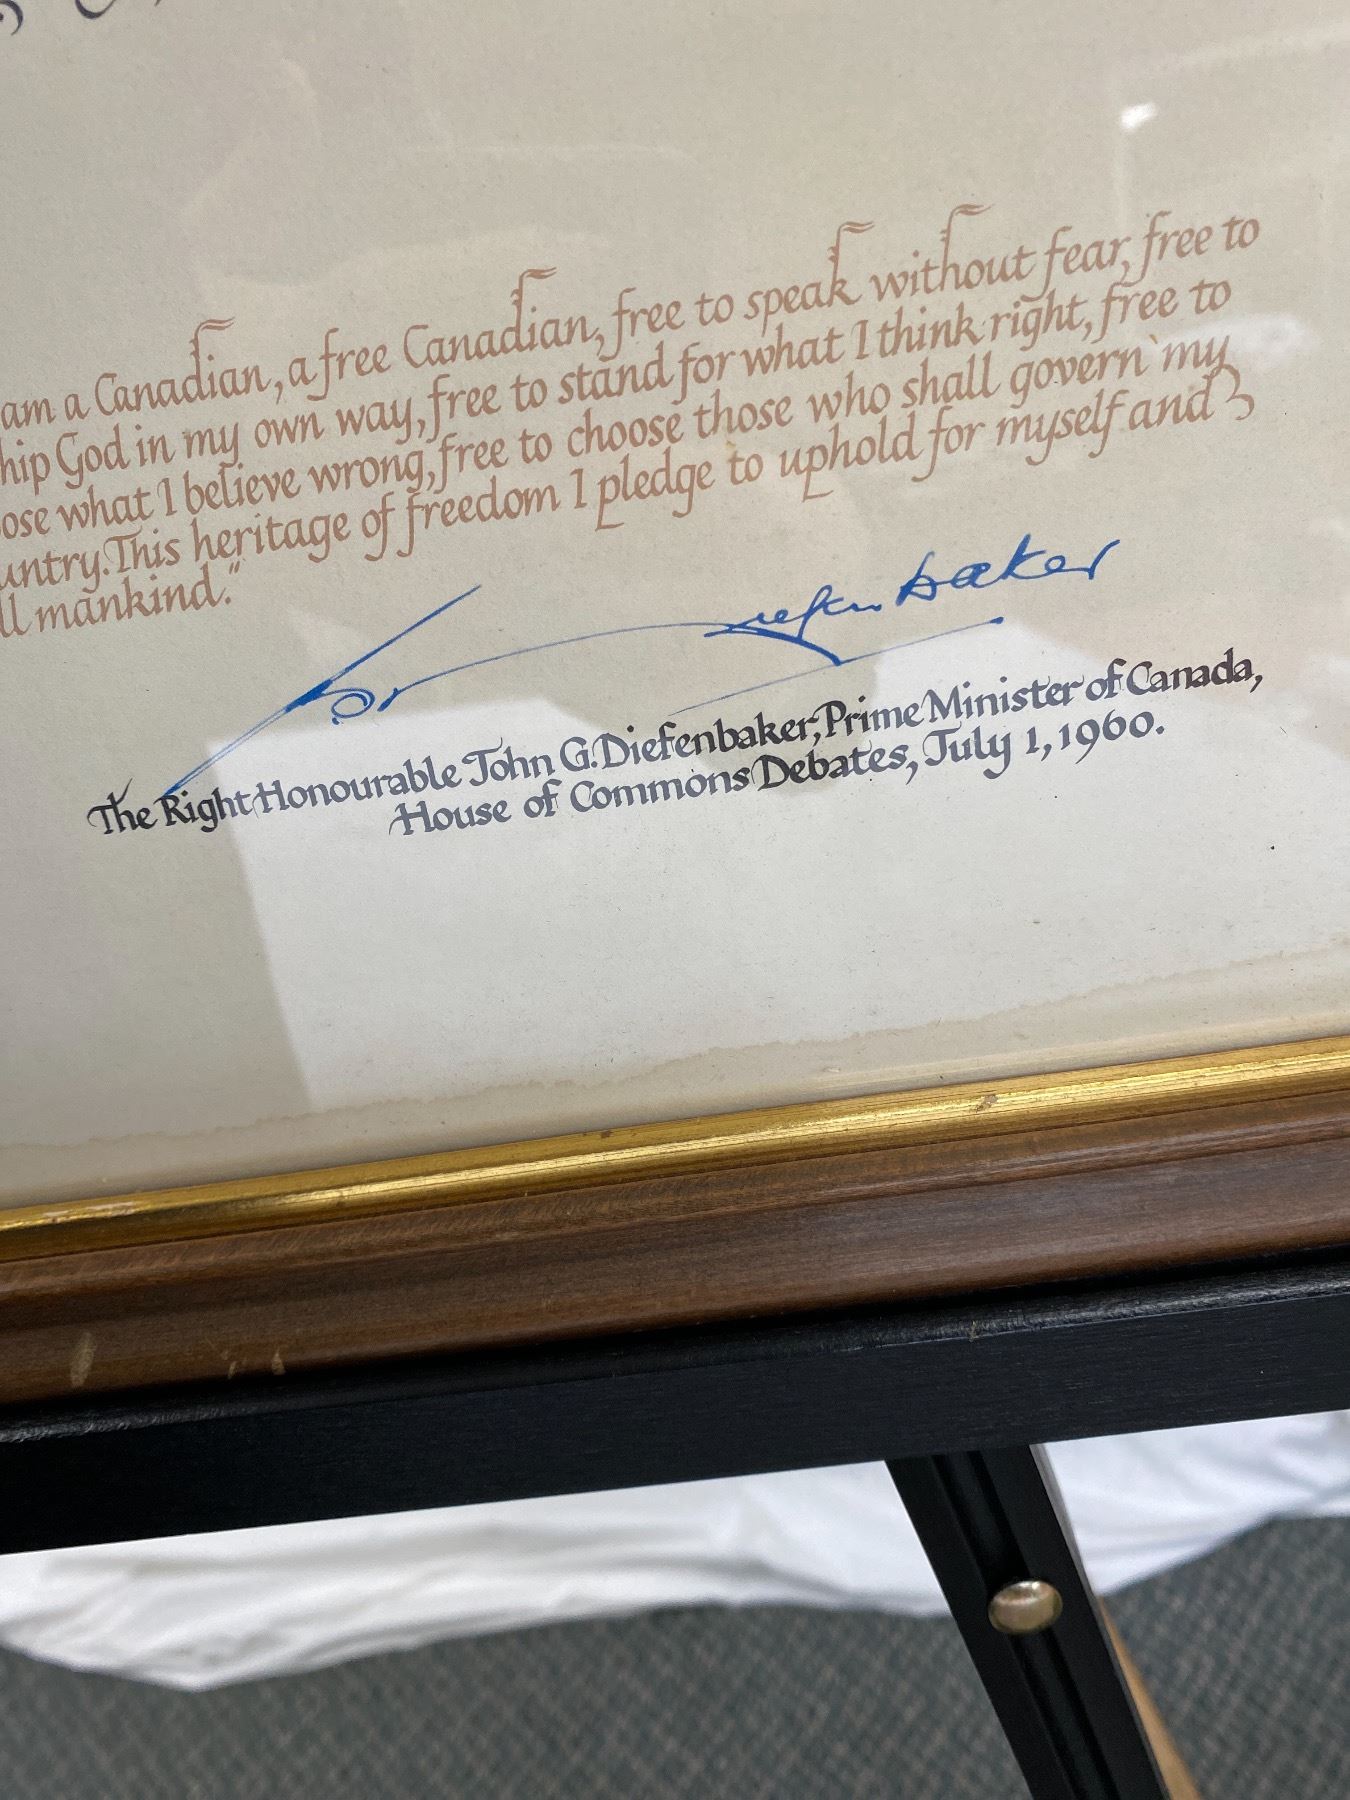 am a Canadian, a free Canadian, free to speak without fear, free to
hip God in my own way, free to stand for what I think right, free to
ose what I believe wrong, free to choose those who shall govern my
untry. This heritage of freedom I pledge to uphold for myself and
ll mankind."
Diefenbaker
The Right Honourable John G. Diefenbaker, Prime Minister of Canada,
House of Commons Debates, July 1, 1960.